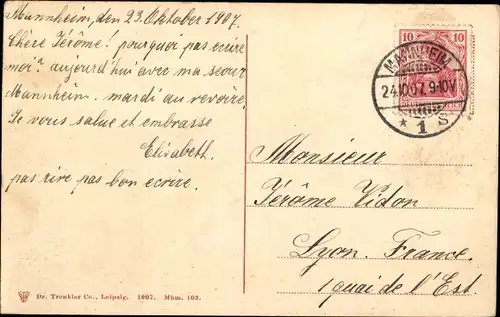 Mannheim, den 23. Oktober 1907.
Chère Jérôme! pourquoi pas ecrire
moi? aujourd'hui avec ma seour
Mannheim. mardi au revoire.
Je vous salue et embrasse
Elisabeth.
pas rire pas bon ecrire.
10 10
MANNHEIM
24.10.07. 9-10V
* 1 S
Monsieur
Jérôme Vidon
Lyon. France.
1 quai de l'Est.
Dr. Trenkler Co., Leipzig. 1907. Mhm. 103.